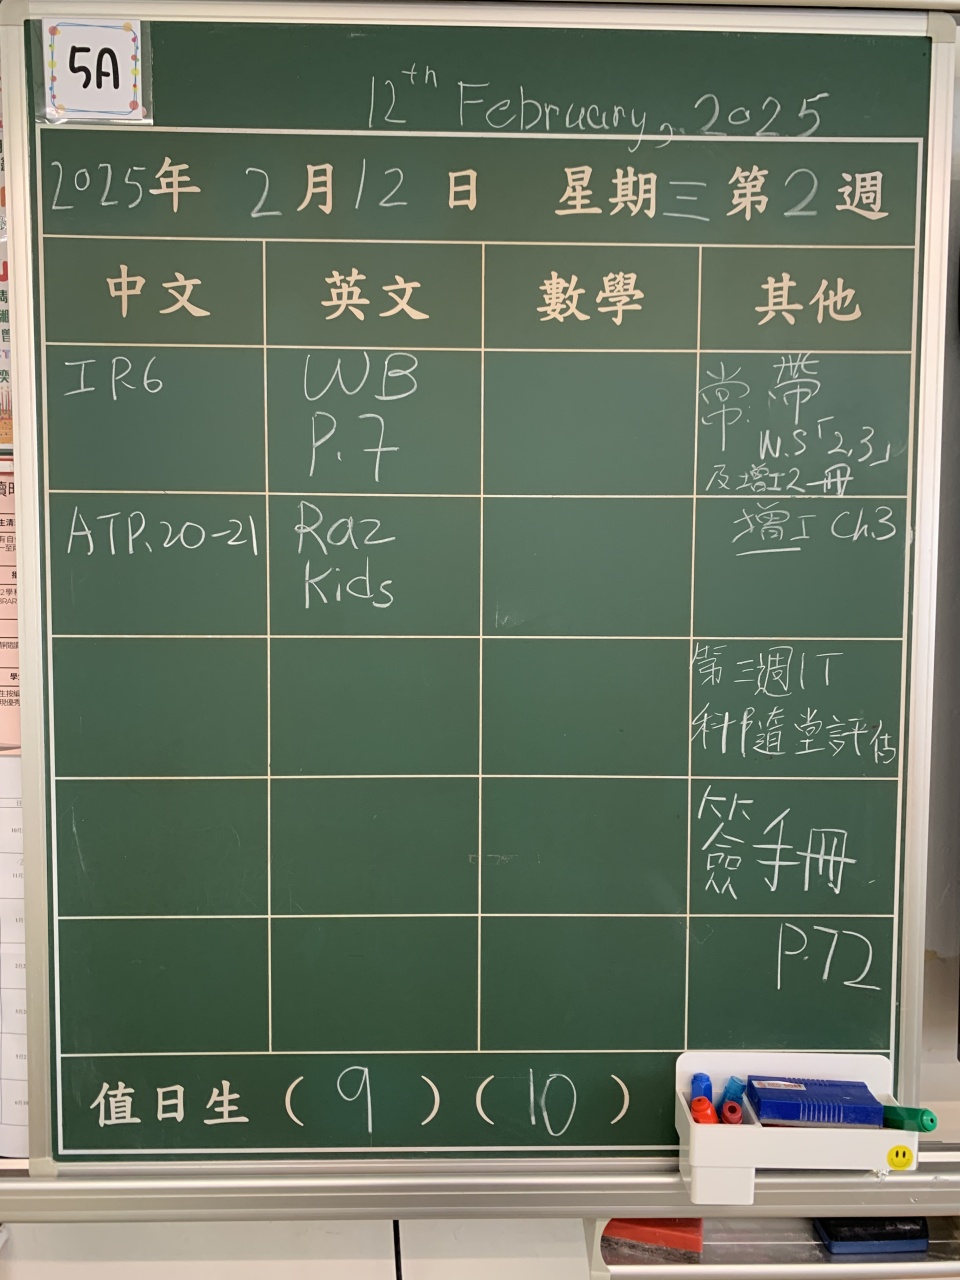 5A
12th February, 2025
2025年 2月12日 星期三第2週
中文 英文 數學 其他
IR6
WB
P.7
常: 帶
W.S「2,3」
及增工2冊
ATP.20-21
Raz
Kids
增工 Ch.3
第三週IT
科隨堂評估
簽手冊
P.72
值日生 (9) (10)